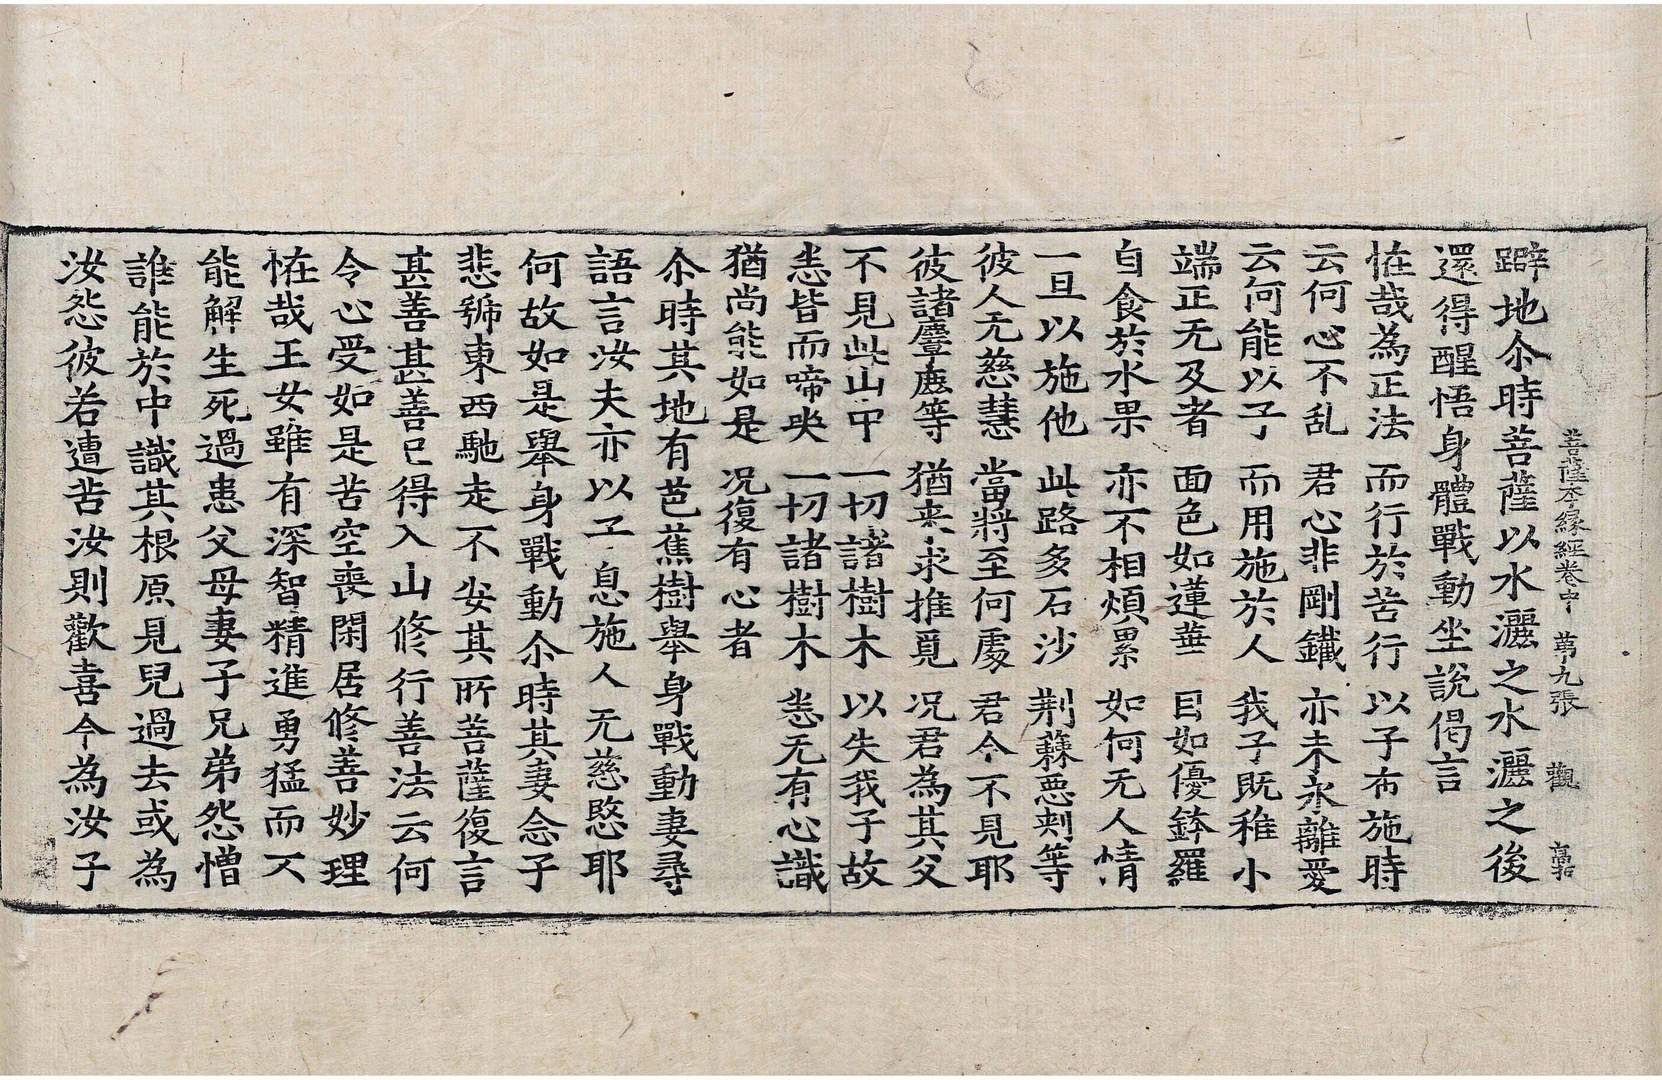 菩薩本縁經卷中 苐九張 觀
躃地尒時菩薩以水灑之水灑之後
還得醒悟身體戰動坐說偈言
恠哉為正法 而行於苦行 以子布施時
云何心不乱 君心非剛鐵 亦未永離愛
云何能以子 而用施於人 我子既稚小
端正无及者 面色如蓮華 目如優鉢羅
自食於水果 亦不相煩累 如何无人情
一旦以施他 此路多石沙 荆蕀惡刾等
彼人无慈慧 當將至何處 君今不見耶
彼諸麞鹿等 猶来求推覓 况君為其父
不見此山中 一切諸樹木 以失我子故
悉皆而啼哭 一切諸樹木 悉无有心識
猶尚能如是 况復有心者
尒時其地有芭蕉樹舉身戰動妻尋
語言汝夫亦以子息施人无慈愍耶
何故如是舉身戰動尒時其妻念子
悲號東西馳走不安其所菩薩復言
甚善甚善已得入山修行善法云何
令心受如是苦空喪閑居修善妙理
恠哉王女雖有深智精進勇猛而不
能解生死過患父母妻子兄弟怨憎
誰能於中識其根原見兒過去或為
汝怨彼若遭苦汝則歡喜今為汝子